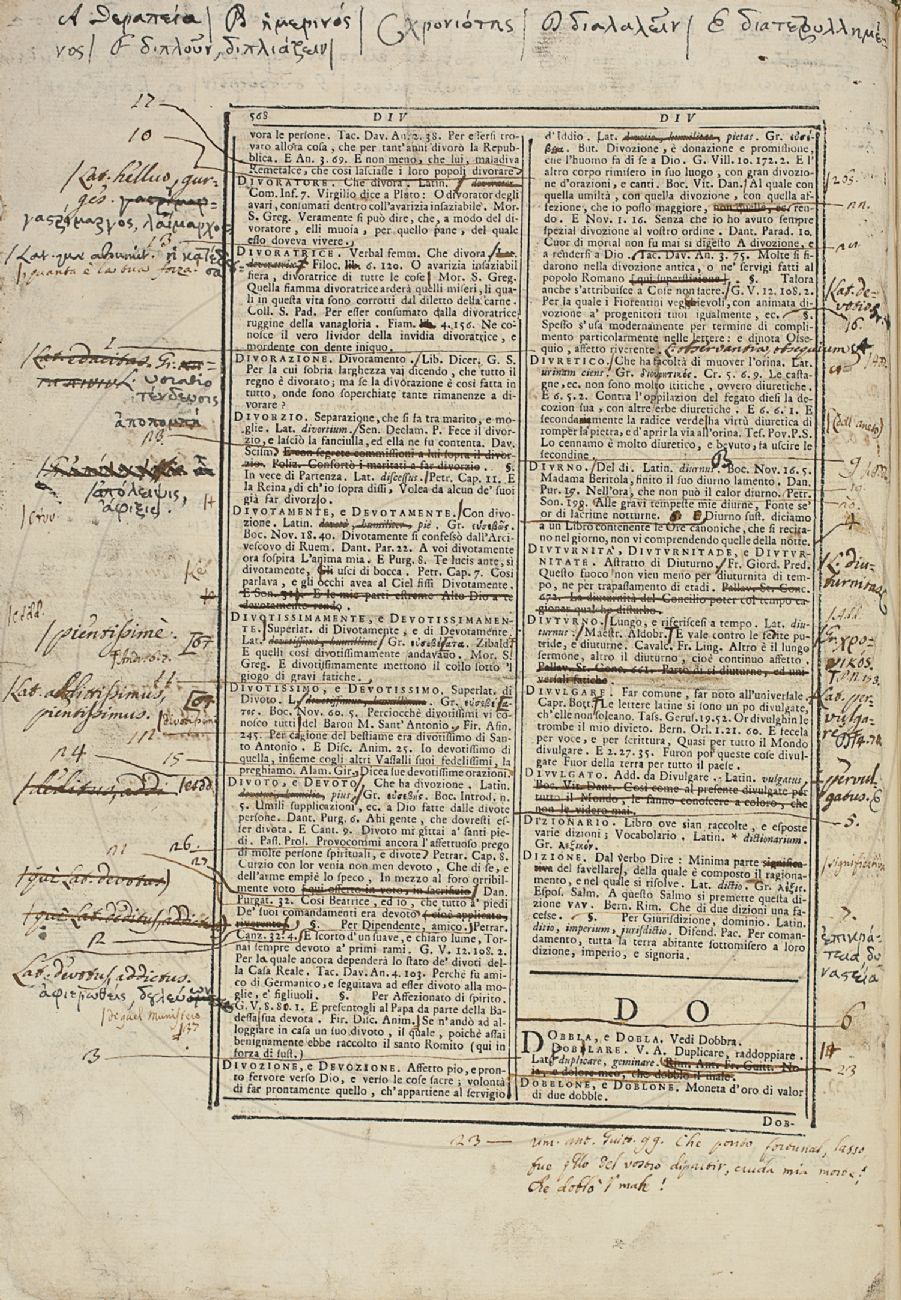 A θεραπεία | B ἡμερινός | C χρονιότης | D διαλαλεῖν | E
νος | F διπλοῦν, διπλιάζειν |
17
10
568 DIV
vora le persone. Tac. Dav. An. 2. 38. Per essersi tro-
vato allora cosa, che per tant'anni divorò la Repub-
blica. E An. 3. 69. E non meno, che lui, maladiva
Remetalce, che così lasciasse i loro popoli divorare.
DIVORATORE. Che divora. Latin.
Com. Inf. 7. Virgilio dice a Pluto: O divorator degli
avari, consumati dentro coll'avarizia insaziabile. Mor.
S. Greg. Veramente si può dire, che, a modo del di-
voratore, elli muoia, per quello pane, del quale
esso doveva vivere.
DIVORATRICE. Verbal femm. Che divora
Filoc. lib. 6. 120. O avarizia insaziabil
fiera, divoratrice di tutte le cose. Mor. S. Greg.
Quella fiamma divoratrice arderà quelli miseri, li qua-
li in questa vita sono corrotti dal diletto della carne.
Coll. S. Pad. Per esser consumato dalla divoratrice
ruggine della vanagloria. Fiam. lib. 4. 156. Ne co-
nosce il vero livido della invidia divoratrice, e
mordente con dente iniquo.
DIVORAZIONE. Divoramento. Lib. Dicer. G. S.
Per la cui sobria larghezza vai dicendo, che tutto il
regno è divorato; ma se la divorazione è così fatta in
tutto, onde sono soperchiate tante rimanenze a di-
vorare?
DIVORZIO. Separazione, che si fa tra marito, e mo-
glie. Lat. divortium. Sen. Declam. P. Fece il divor-
zio, e lasciò la fanciulla, ed ella ne fu contenta. Dav.
Scism. E con segrete commissioni a lui sopra il divor-
zio. Poliz. Confortò i maritati a far divorzio. §.
In vece di Partenza. Lat. discessus. Petr. Cap. 11. E
la Reina, di ch'io sopra dissi, Volea da alcun de' suoi
già far divorzio.
DIVOTAMENTE, e DEVOTAMENTE. Con divo-
zione. Latin. devotè, humiliter, piè. Gr. εὐσεβῶς.
Boc. Nov. 18. 40. Divotamente si confessò dall'Arci-
vescovo di Ruem. Dant. Par. 22. A voi divotamente
ora sospira L'anima mia. E Purg. 8. Te lucis ante, sì
divotamente, Gli uscì di bocca. Petr. Cap. 7. Così
parlava, e gli occhi avea al Ciel fissi Divotamente.
E Son.
divotamente rendo.
DIVOTISSIMAMENTE, e DEVOTISSIMAMEN-
TE. Superlat. di Divotamente, e di Devotamente.
Lat. devotissimè, humillimè. Gr. Zibald.
E quelli così divotissimamente andavano. Mor. S.
Greg. E divotissimamente mettono il collo sotto 'l
giogo di gravi fatiche.
DIVOTISSIMO, e DEVOTISSIMO. Superlat. di
Divoto.
Boc. Nov. 60. 5. Perciocchè divotissimi vi co-
nosco tutti del Baron M. Sant'Antonio. Fir. Asin.
245. Per cagione del bestiame era divotissimo di San-
to Antonio. E Disc. Anim. 25. Io devotissimo di
quella, insieme cogli altri Vassalli suoi fedelissimi, la
preghiamo. Alam. Gir. Dicea sue devotissime orazioni.
DIVOTO, e DEVOTO. Che ha divozione. Latin.
devotus, humilis, pius. Gr. εὐσεβής. Boc. Introd. n.
5. Umili supplicazioni, ec. a Dio fatte dalle divote
persone. Dant. Purg. 6. Ahi gente, che dovresti es-
ser divota. E Cant. 9. Divoto mi gittai a' santi pie-
di. Pass. Prol. Provocommi ancora l'affettuoso prego
di molte persone spirituali, e divote. Petrar. Cap. 8.
Curzio con lor venia non men devoto, Che di se, e
dell'arme empiè lo speco, In mezzo al foro orribil-
mente voto [quì offerto in voto, in sacrificio] Dan.
Purgat. 32. Così Beatrice, ed io, che tutto a' piedi
De' suoi comandamenti era devoto [cioè applicato,
§. Per Dipendente, amico. Petrar.
Canz. 32. 4. E scorto d'un suave, e chiaro lume, Tor-
nai sempre devoto a' primi rami. G. V. 12. 108. 2.
Per la quale ancora dependerà lo stato de' divoti del-
la Casa Reale. Tac. Dav. An. 4. 103. Perchè fu ami-
co di Germanico, e seguitava ad esser divoto alla mo-
glie, e' figliuoli. §. Per Affezionato di spirito.
G. V. 8. 80. 1. E presentogli al Papa da parte della Ba-
dessa sua devota. Fir. Disc. Anim. Se n'andò ad al-
loggiare in casa un suo divoto, il quale, poichè assai
benignamente ebbe raccolto il santo Romito (qui in
forza di sust.)
DIVOZIONE, e DEVOZIONE. Affetto pio, e pron-
to fervore verso Dio, e verso le cose sacre; volontà
di far prontamente quello, ch'appartiene al servigio
DIV
d'Iddio. Lat. devotio, humilitas, pietas. Gr. εὐσέ-
βεια. But. Divozione, è donazione e promissione,
che l'huomo fa di se a Dio. G. Vill. 10. 172. 2. E l'
altro corpo rimisero in suo luogo, con gran divozio-
ne d'orazioni, e canti. Boc. Vit. Dan. Al quale con
quella umiltà, con quella divozione, con quella af-
fezione, che io posso maggiore, con quella, ec. ren-
do. E Nov. 1. 16. Senza che io ho avuto sempre
spezial divozione al vostro ordine. Dant. Parad. 10.
Cuor di mortal non fu mai sì digesto A divozione, e
a rendersi a Dio. Tac. Dav. An. 3. 75. Molte si fi-
darono nella divozione antica, o ne' servigi fatti al
popolo Romano [quì superstizione]. §. Talora
anche s'attribuisce a Cose non sacre. G. V. 12. 108. 2.
Per la quale i Fiorentini vegghievoli, con animata di-
vozione a' progenitori tuoi igualmente, ec. §.
Spesso s'usa modernamente per termine di compli-
mento particolarmente nelle lettere: e dinota Osse-
quio, affetto riverente.
DIVRETICO. Che ha facoltà di muover l'orina. Lat.
urinam ciens. Gr. διουρητικός. Cr. 5. 6. 9. Le casta-
gne, ec. non sono molto stitiche, ovvero diuretiche.
E 6. 5. 2. Contra l'oppilazion del fegato diesi la de-
cozion sua, con altre erbe diuretiche. E 6. 6. 1. E
secondariamente la radice verde ha virtù diuretica di
romper la pietra, e d'aprir la via all'orina. Tes. Pov. P. S.
Lo cennamo è molto diuretico, e bevuto, fa uscire le
secondine.
DIVRNO. Del dì. Latin. diurnus. Boc. Nov. 16. 5.
Madama Beritola, finito il suo diurno lamento. Dan.
Pur. 19. Nell'ora, che non può il calor diurno. Petr.
Son. 199. Alle gravi tempeste mie diurne, Fonte se'
or di lacrime notturne. Diurno sust. diciamo
a un Libro contenente le Ore canoniche, che si recita-
no nel giorno, non vi comprendendo quelle della notte.
DIVTVRNITÀ, DIVTVRNITADE, e DIVTVR-
NITATE. Astratto di Diuturno. Fr. Giord. Pred.
Questo fuoco non vien meno per diuturnità di tem-
po, ne per trapassamento di etadi. Pallav. Stor. Conc.
672. La diuturnità del Concilio poter col tempo ca-
gionar qualche disturbo.
DIVTVRNO. Lungo, e riferiscesi a tempo. Lat. diu-
turnus. Maestr. Aldobr. E vale contro le fedite pu-
tride, e diuturne. Cavalc. Fr. Ling. Altro è il lungo
sermone, altro il diuturno, cioè continuo affetto.
Pallav. Stor. Conc. 661. Parto di sì diuturne, ed uni-
versali fatiche.
DIVULGARE. Far comune, far noto all'universale.
Capr. Bott. Le lettere latine si sono un po divulgate,
ch'elle non soleano. Tass. Gerus. 19. 52. Or divulghin le
trombe il mio divieto. Bern. Orl. 1. 21. 60. E fecela
per voce, e per scrittura, Quasi per tutto il Mondo
divulgare. E 2. 27. 35. Furon poi queste cose divul-
gate Fuor della terra per tutto il paese.
DIVULGATO. Add. da Divulgare. Latin. vulgatus.
Boc. Vit. Dant. Così come al presente divulgate per
tutto il Mondo, le fanno conoscere a coloro, che
non le videro mai.
DIZIONARIO. Libro ove sian raccolte, e esposte
varie dizioni; Vocabolario. Latin. * dictionarium.
Gr. λεξικόν.
DIZIONE. Dal verbo Dire: Minima parte significa-
tiva del favellare, della quale è composto il ragiona-
mento, e nel quale si risolve. Lat. dictio. Gr. λέξις.
Espos. Salm. A questo Salmo si premette questa di-
zione VAV. Bern. Rim. Che di due dizioni una fa-
cesse. §. Per Giurisdizione, dominio. Latin.
ditio, imperium, jurisdictio. Difend. Pac. Per coman-
damento, tutta la terra abitante sottomisero a loro
dizione, imperio, e signoria.
DO
DOBBLA, e DOBLA. Vedi Dobbra.
DOBBLARE. V. A. Duplicare, raddoppiare.
Lat. duplicare, geminare. Rim. Ant. Fr. Guitt. No
ia, e dolore meo, che dobblo il male.
DOBBLONE, e DOBLONE. Moneta d'oro di valor
di due dobble.
DOB-
Lat. helluo, gur-
ges.
γαστρίμαργος, λαίμαργος
ἀποπομπή
ἀπόλειψις,
ἄφιξις.
pientissimè.
Lat. addictissimus,
pientissimus.
n 4
15
26
27
(quì Lat. devotus)
(quì Lat. deditus, addictus)
12
Lat. devotus, addictus.
3
Lat. de-
votio
16.
observantia, obsequium
9
4
L. diu-
turnitas
Lat. per-
vulga-
re
pervul-
gatus. E
5.
significativa
7.
ἐπικρά-
τεια, δυ
ναστεία
6
23
23 — Rim. ant. Guitt. 99. Che
che dobblo 'l male!